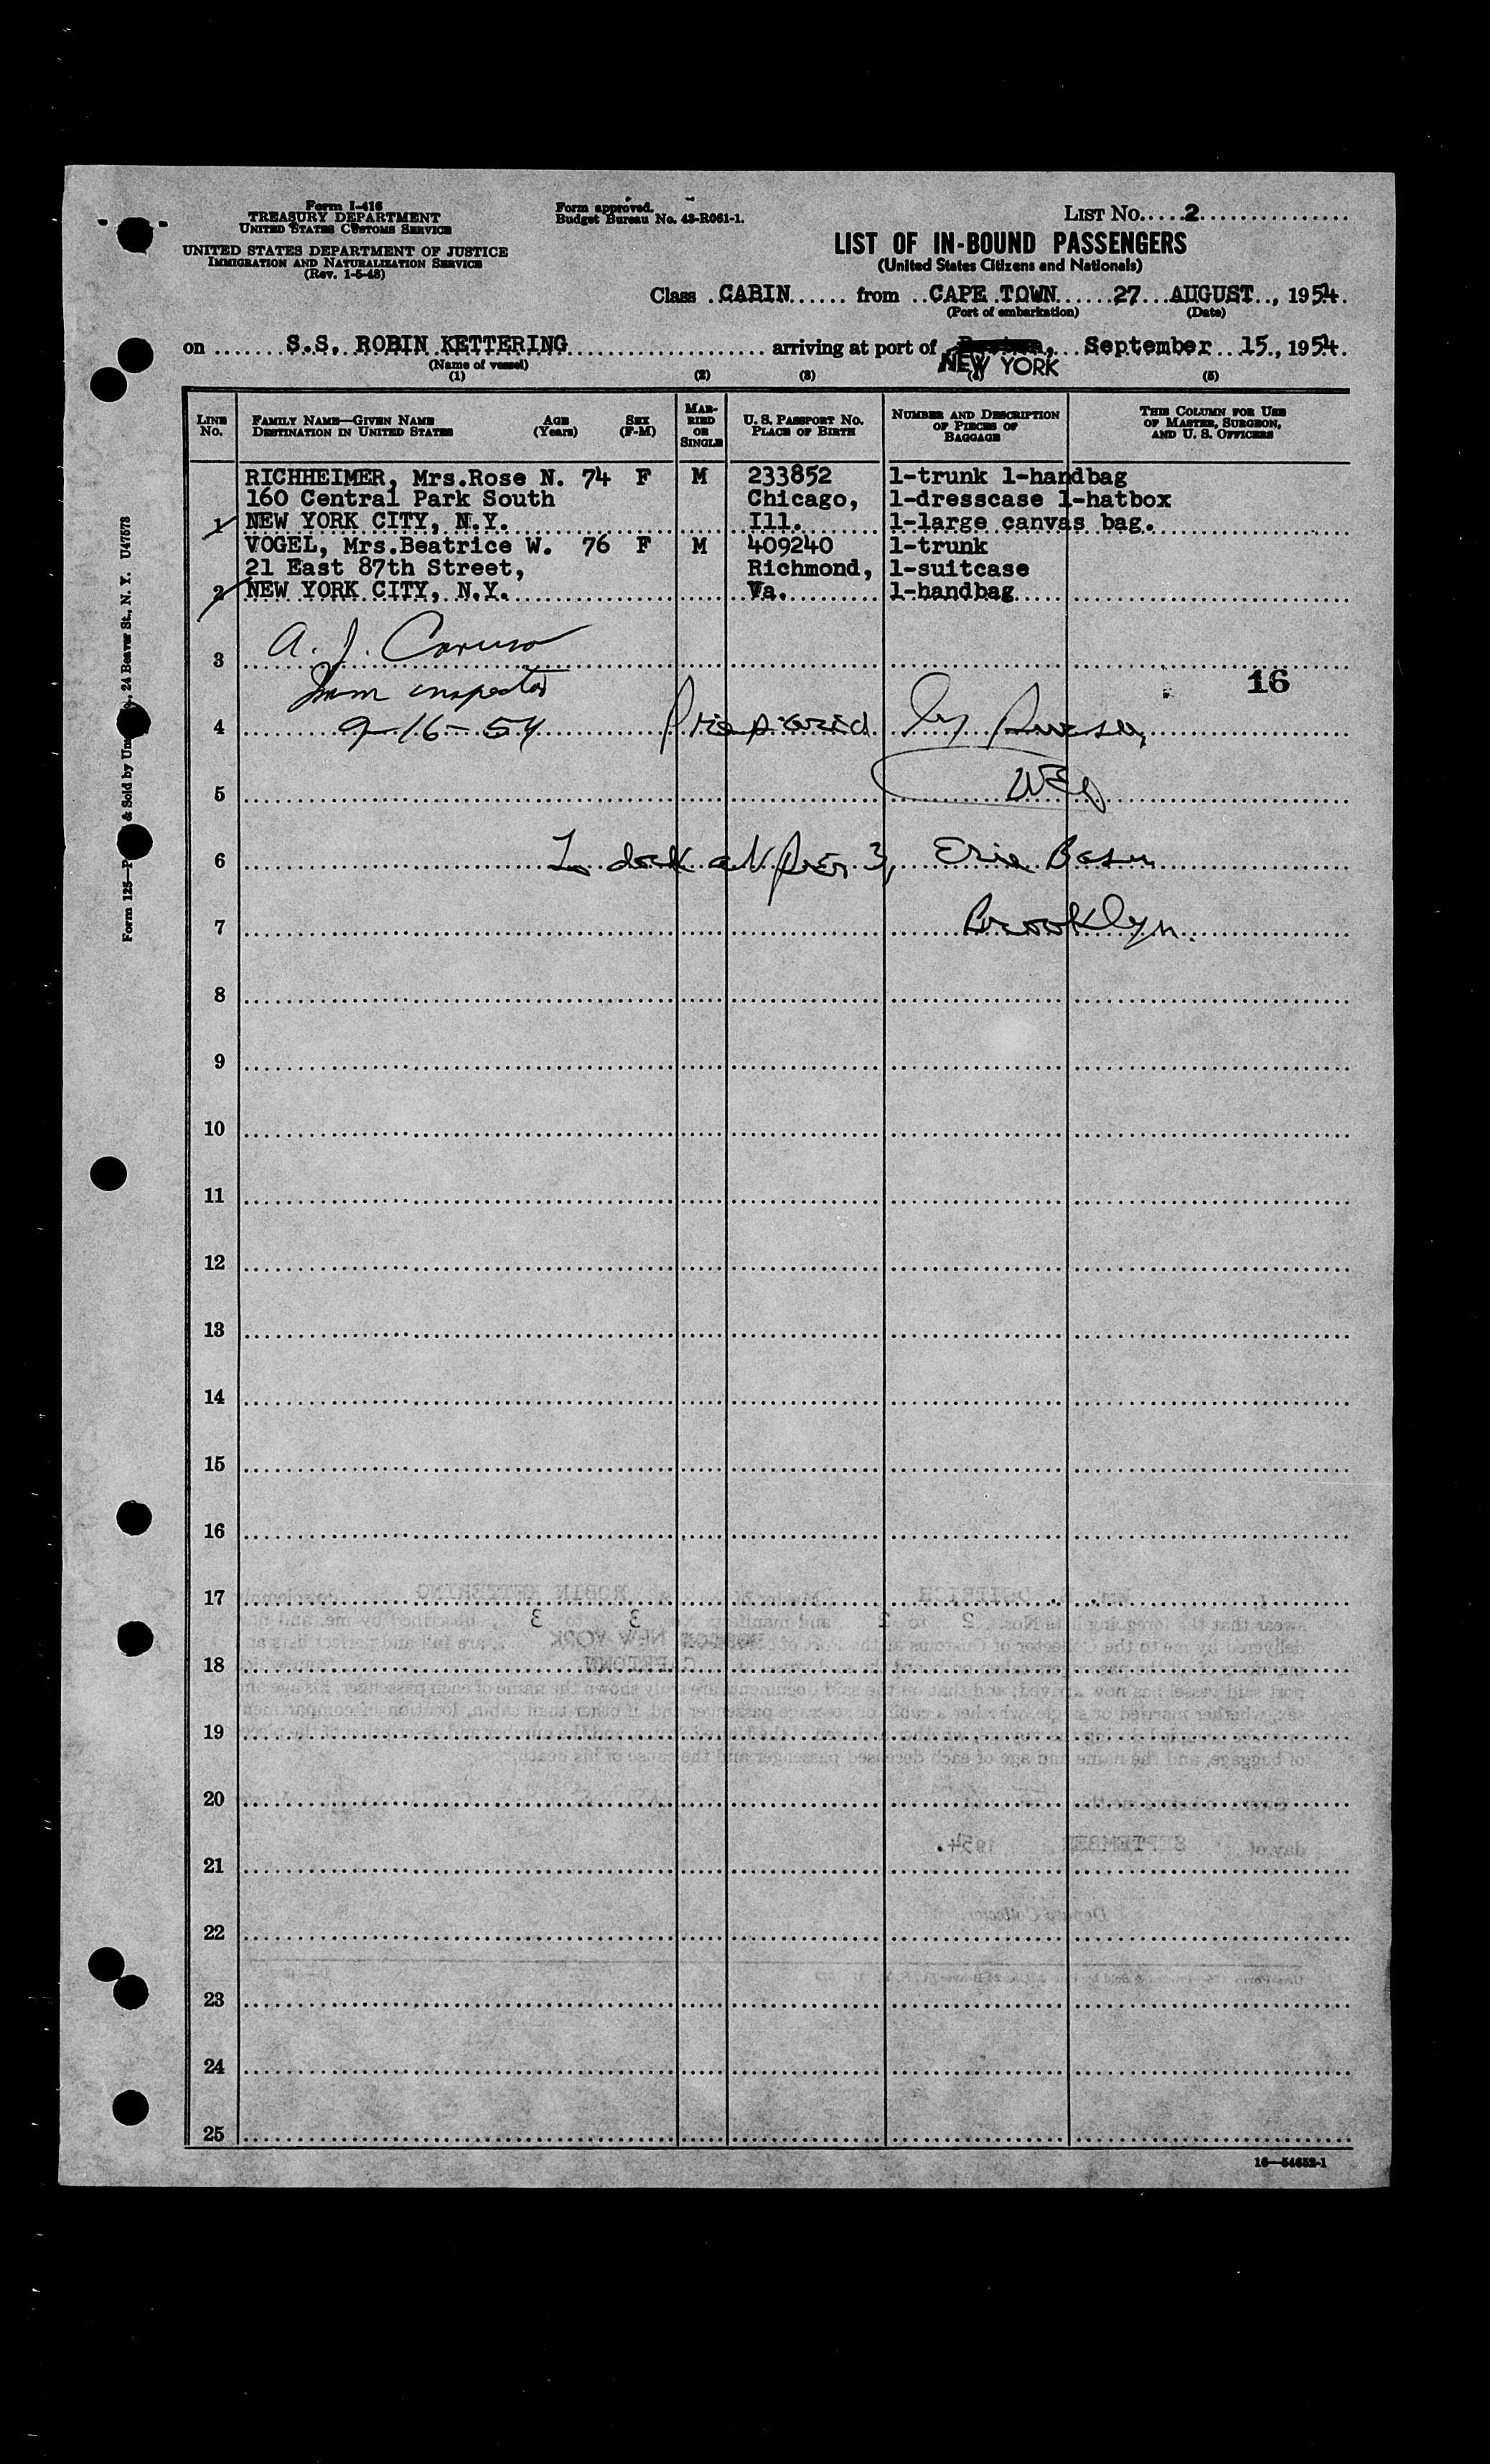 Form I-416
TREASURY DEPARTMENT
UNITED STATES CUSTOMS SERVICE
UNITED STATES DEPARTMENT OF JUSTICE
IMMIGRATION AND NATURALIZATION SERVICE
(Rev. 1-5-48)
Form approved.
Budget Bureau No. 43-R061-1.
LIST NO.....2...............
LIST OF IN-BOUND PASSENGERS
(United States Citizens and Nationals)
Class .CABIN...... from ..CAPE TOWN......27...AUGUST.., 1954.
(Port of embarkation) (Date)
on .......S.S. ROBIN KETTERING.................... arriving at port of September 15., 1954.
NEW YORK
(Name of vessel)
(1) (2) (3) (5)
LINE No. FAMILY NAME—GIVEN NAME DESTINATION IN UNITED STATES AGE (Years) SEX (F-M) MARRIED OR SINGLE U. S. PASSPORT NO. PLACE OF BIRTH NUMBER AND DESCRIPTION OF PIECES OF BAGGAGE THIS COLUMN FOR USE OF MASTER, SURGEON, AND U. S. OFFICERS
RICHHEIMER, Mrs.Rose N. 74 F M 233852 1-trunk 1-handbag
160 Central Park South Chicago, 1-dresscase 1-hatbox
1 NEW YORK CITY, N.Y. Ill. 1-large canvas bag.
VOGEL, Mrs.Beatrice W. 76 F M 409240 1-trunk
21 East 87th Street, Richmond, 1-suitcase
2 NEW YORK CITY, N.Y. Va. 1-handbag
A. J. Caruso
3
Imm inspector 16
4 9-16-54 by
5
6 To dock at Pier 3, Erie Basin
7 Brooklyn.
8
9
10
11
12
13
14
15
16
17
18
19
20
21
22
23
24
25
16—54652-1
Form 125— & Sold by 24 Beaver St., N. Y. U47573